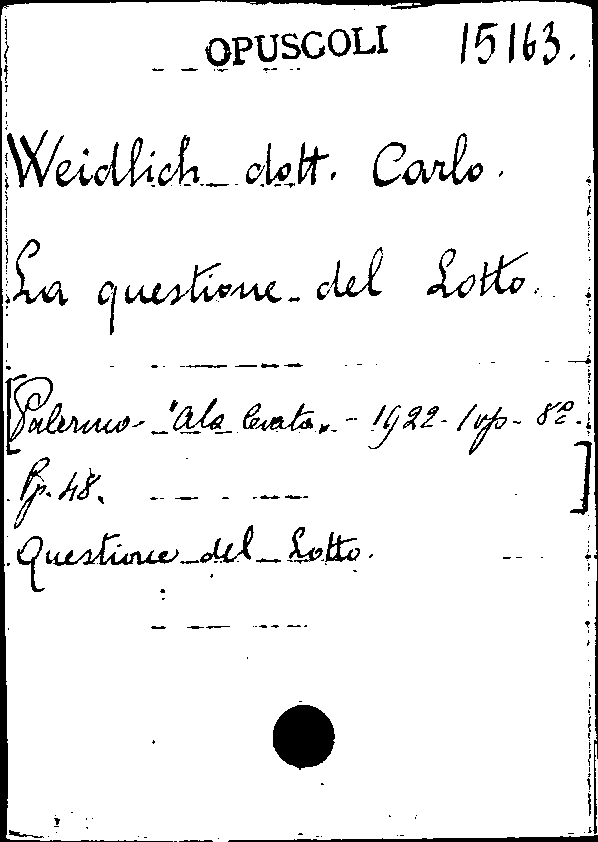 OPUSCOLI 15163.
Weidlich dott. Carlo.
La questione del Lotto.
[Palermo - "Ala levata" - 1922 - 1 op - 8º.
Pp. 48. ]
Questione del Lotto.